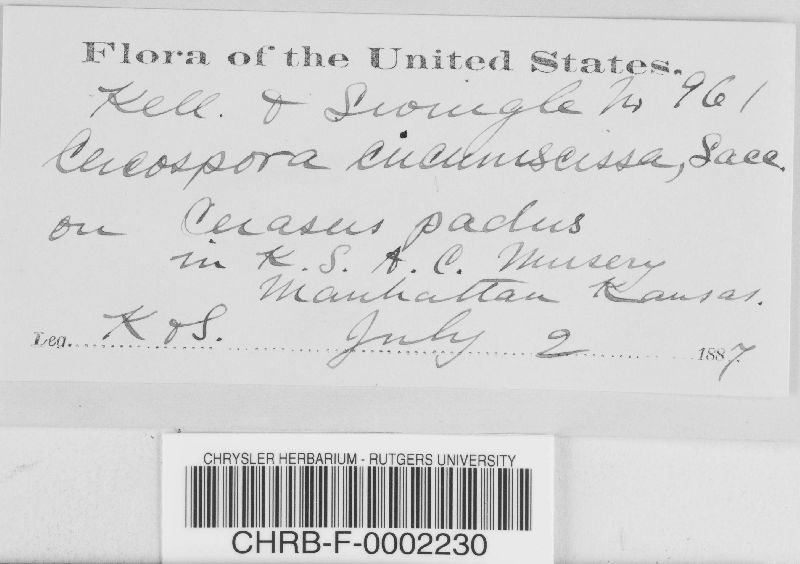 Flora of the United States.
Kell. & Swingle No 961
Cercospora circumscissa, Sacc.
on Cerasus padus
in K. S. A. C. Nursery
Manhattan Kansas.
Leg. K & S. July 2 1887
CHRYSLER HERBARIUM - RUTGERS UNIVERSITY
CHRB-F-0002230